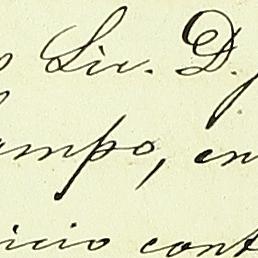 Lic. D.
ampo, en
icio cont